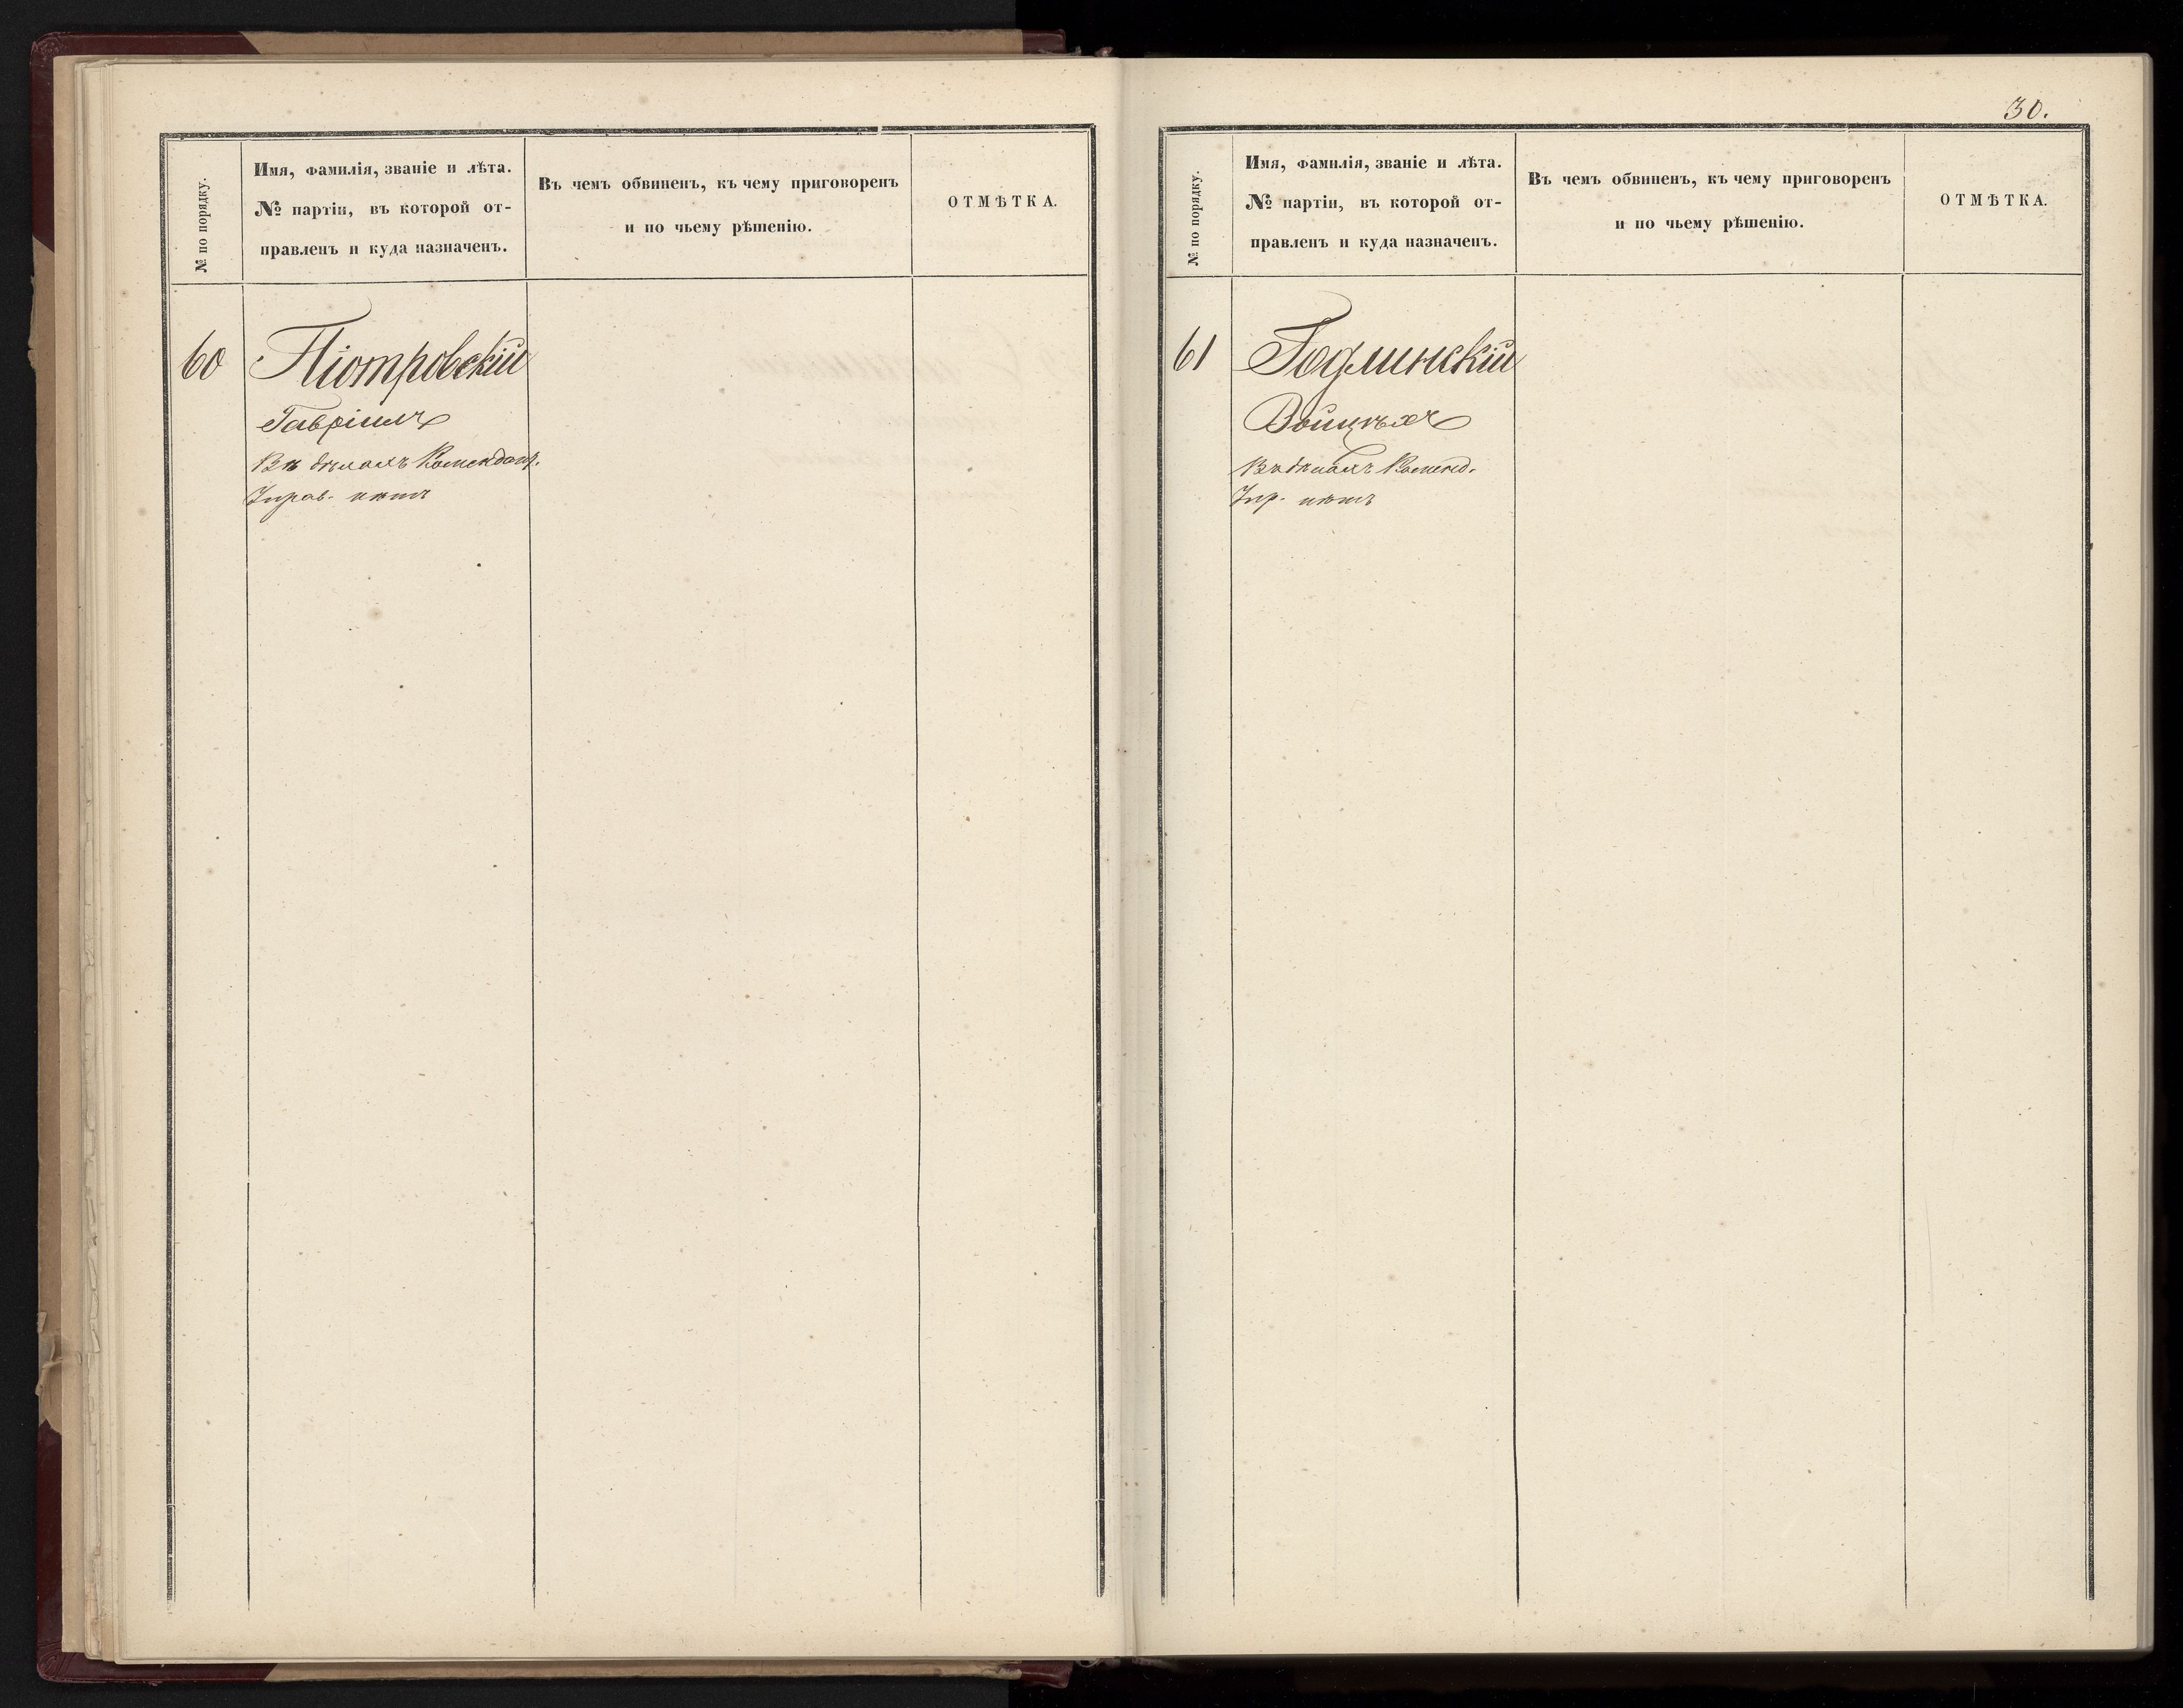 № по порядку.
Имя, фамилія, званіе и лѣта.
№ партіи, въ которой от-
правленъ и куда назначенъ.
Въ чемъ обвиненъ, къ чему приговоренъ
и по чьему рѣшенію.
ОТМѢТКА.
60
Піотровскій
Гавріилъ
Въ дѣлахъ Комендант.
Управ. нѣтъ
30.
№ по порядку.
Имя, фамилія, званіе и лѣта.
№ партіи, въ которой от-
правленъ и куда назначенъ.
Въ чемъ обвиненъ, къ чему приговоренъ
и по чьему рѣшенію.
ОТМѢТКА.
61
Годлинскій
Войцѣхъ
Въ дѣлахъ Коменд.
Упр. нѣтъ